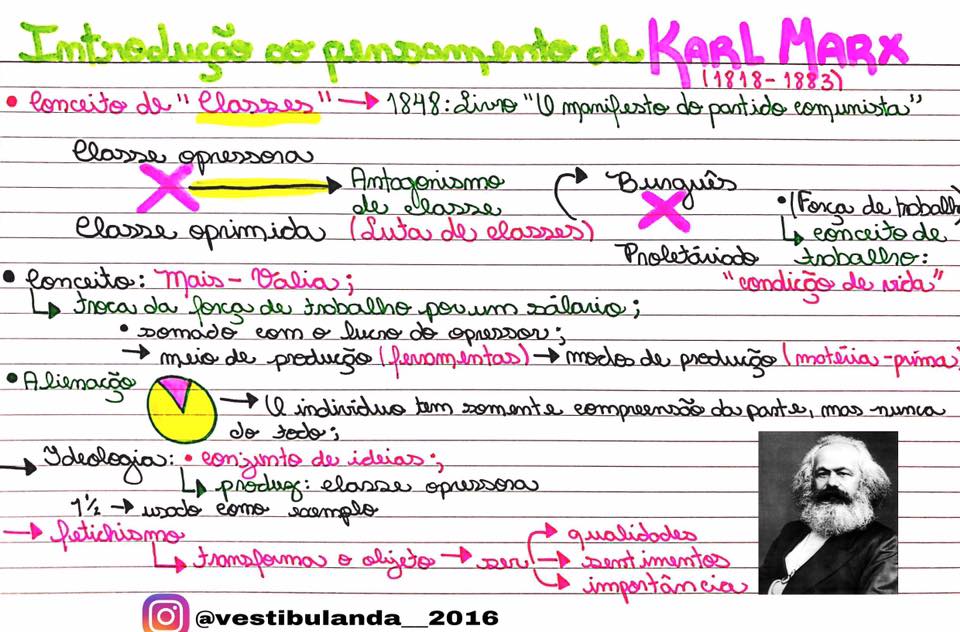 Introdução ao pensamento de KARL MARX
(1818-1883)
• Conceito de "Classes" → 1848: Livro "O manifesto do partido comunista"
Classe opressora
Antagonismo
de classe
Classe oprimida (Luta de classes)
Burguês
Proletáriado
• (Força de trabalh
↳ conceito de
trabalho:
"condição de vida"
• Conceito: Mais-Valia;
↳ troca da força de trabalho por um sálario;
• somado com o lucro do opressor;
→ meio de produção (ferramentas) → modo de produção (matéria-prima)
• Alienação
→ O indivíduo tem somente compreensão da parte, mas nunca
do todo;
→ Ideologia: • conjunto de ideias;
↳ produz: classe opressora
1½ → usado como exemplo
→ fetichismo
↳ transforma o objeto → ser
→ qualidades
→ sentimentos
→ importância
@vestibulanda__2016